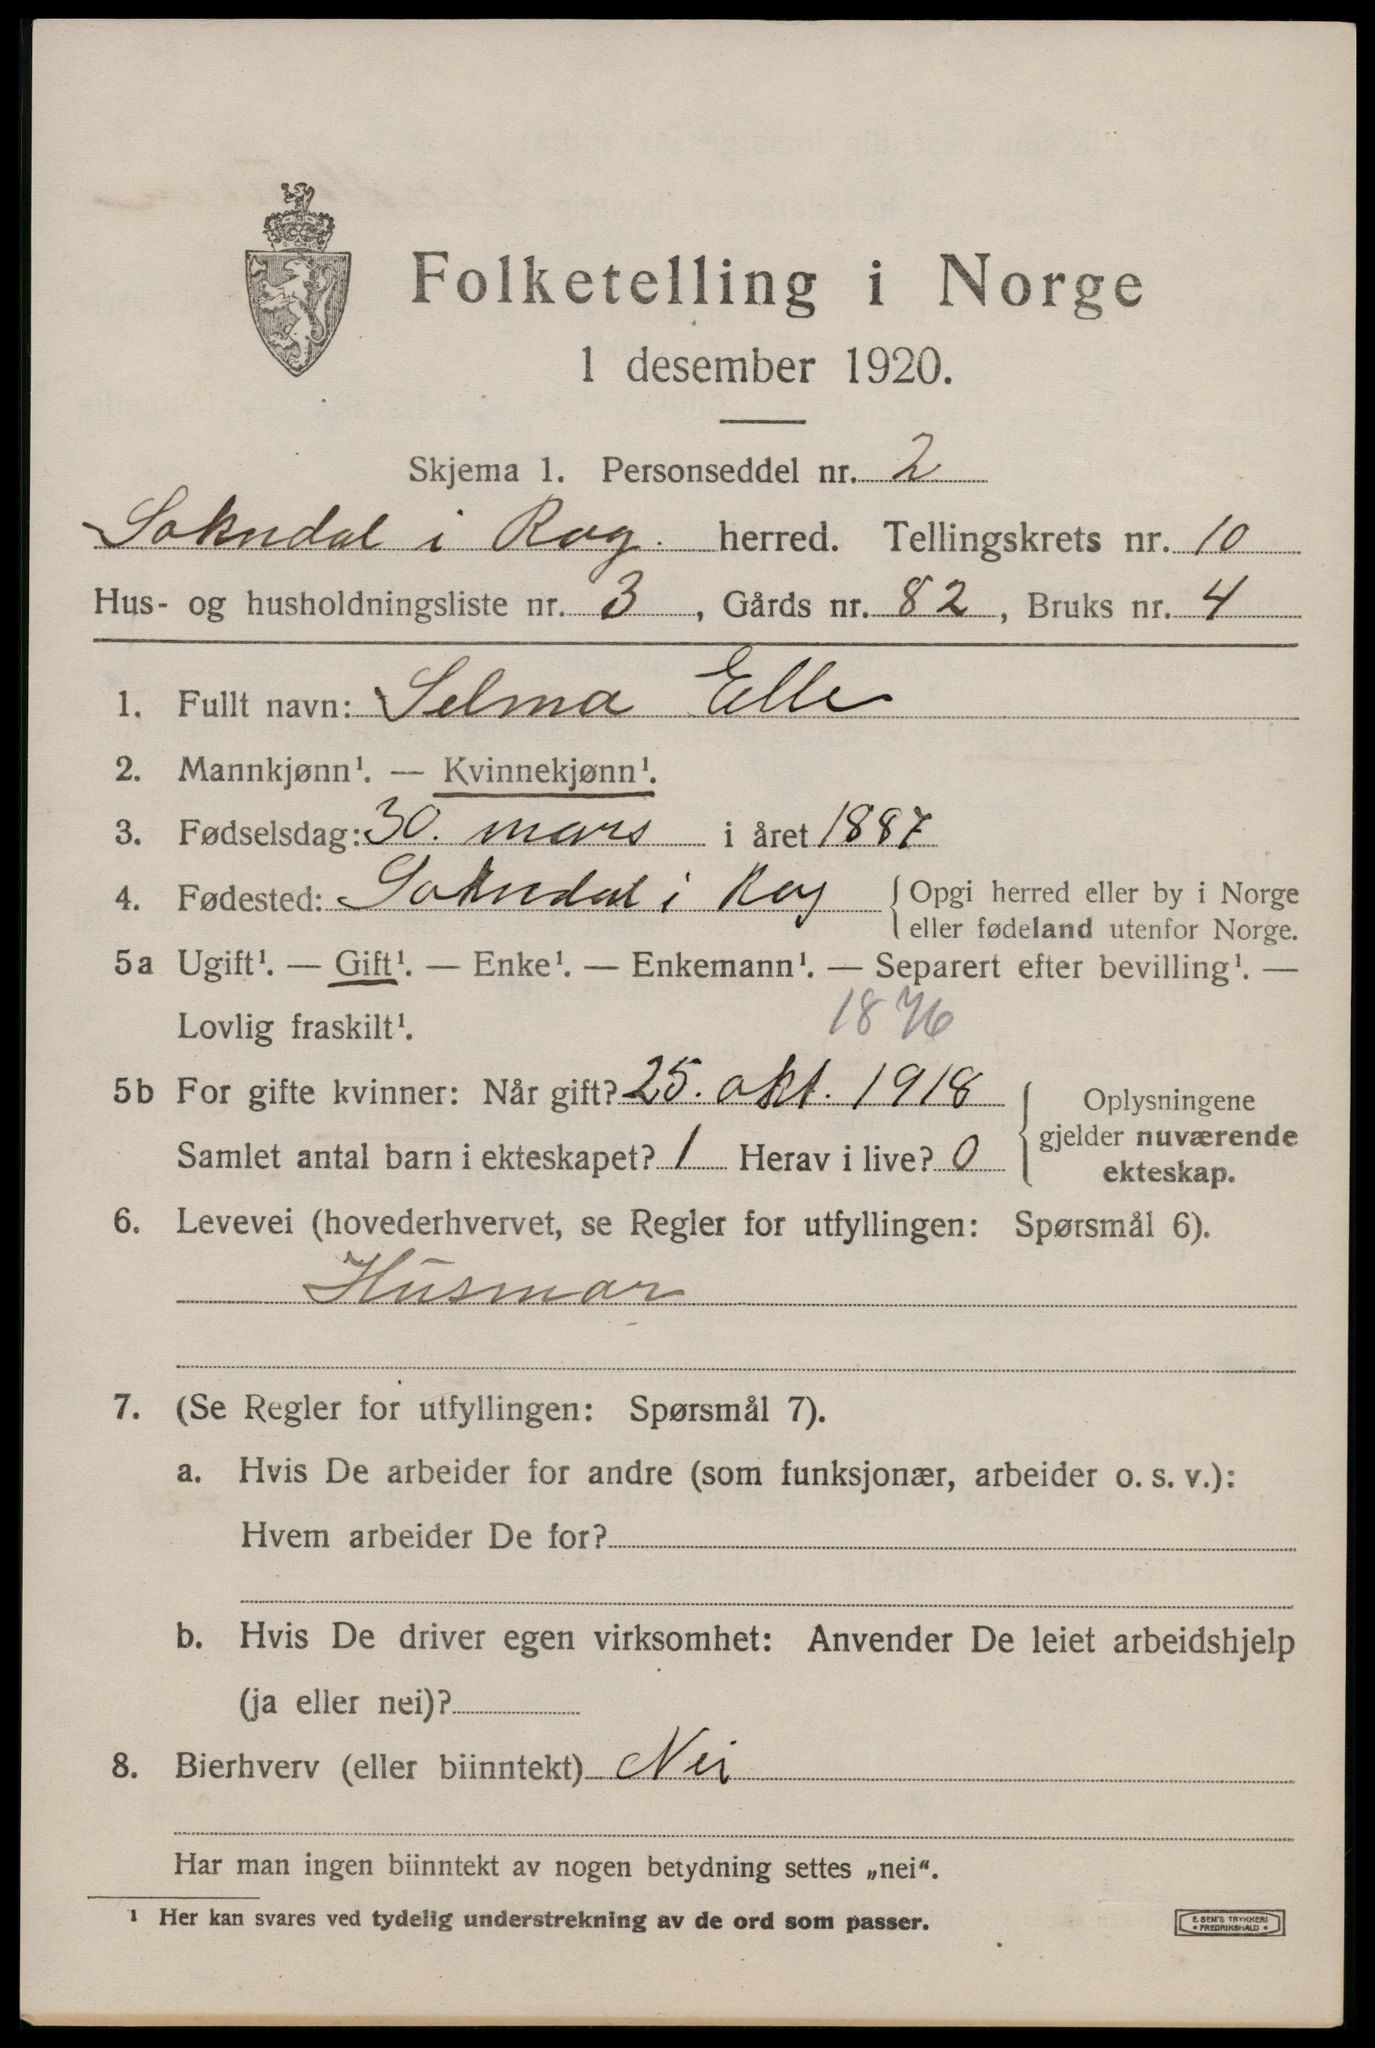 Folketelling i Norge
1 desember 1920.
Skjema 1. Personseddel nr. 2
Sokndal i Rog. herred. Tellingskrets nr. 10
Hus- og husholdningsliste nr. 3, Gårds nr. 82, Bruks nr. 4
1. Fullt navn: Selma Elle
2. Mannkjønn¹. — Kvinnekjønn¹.
3. Fødselsdag: 30. mars i året 1887
4. Fødested: Sokndal i Rog { Opgi herred eller by i Norge
eller fødeland utenfor Norge.
5a Ugift¹. — Gift¹. — Enke¹. — Enkemann¹. — Separert efter bevilling¹. —
Lovlig fraskilt¹. 1876
5b For gifte kvinner: Når gift? 25. okt. 1918 { Oplysningene
gjelder nuværende
Samlet antal barn i ekteskapet? 1 Herav i live? 0 ekteskap.
6. Levevei (hovederhvervet, se Regler for utfyllingen: Spørsmål 6).
Husmor
7. (Se Regler for utfyllingen: Spørsmål 7).
a. Hvis De arbeider for andre (som funksjonær, arbeider o. s. v.):
Hvem arbeider De for?
b. Hvis De driver egen virksomhet: Anvender De leiet arbeidshjelp
(ja eller nei)?
8. Bierhverv (eller biinntekt) Nei
Har man ingen biinntekt av nogen betydning settes „nei“.
¹ Her kan svares ved tydelig understrekning av de ord som passer.
E. SEM'S TRYKKERI
• FREDRIKSHALD •